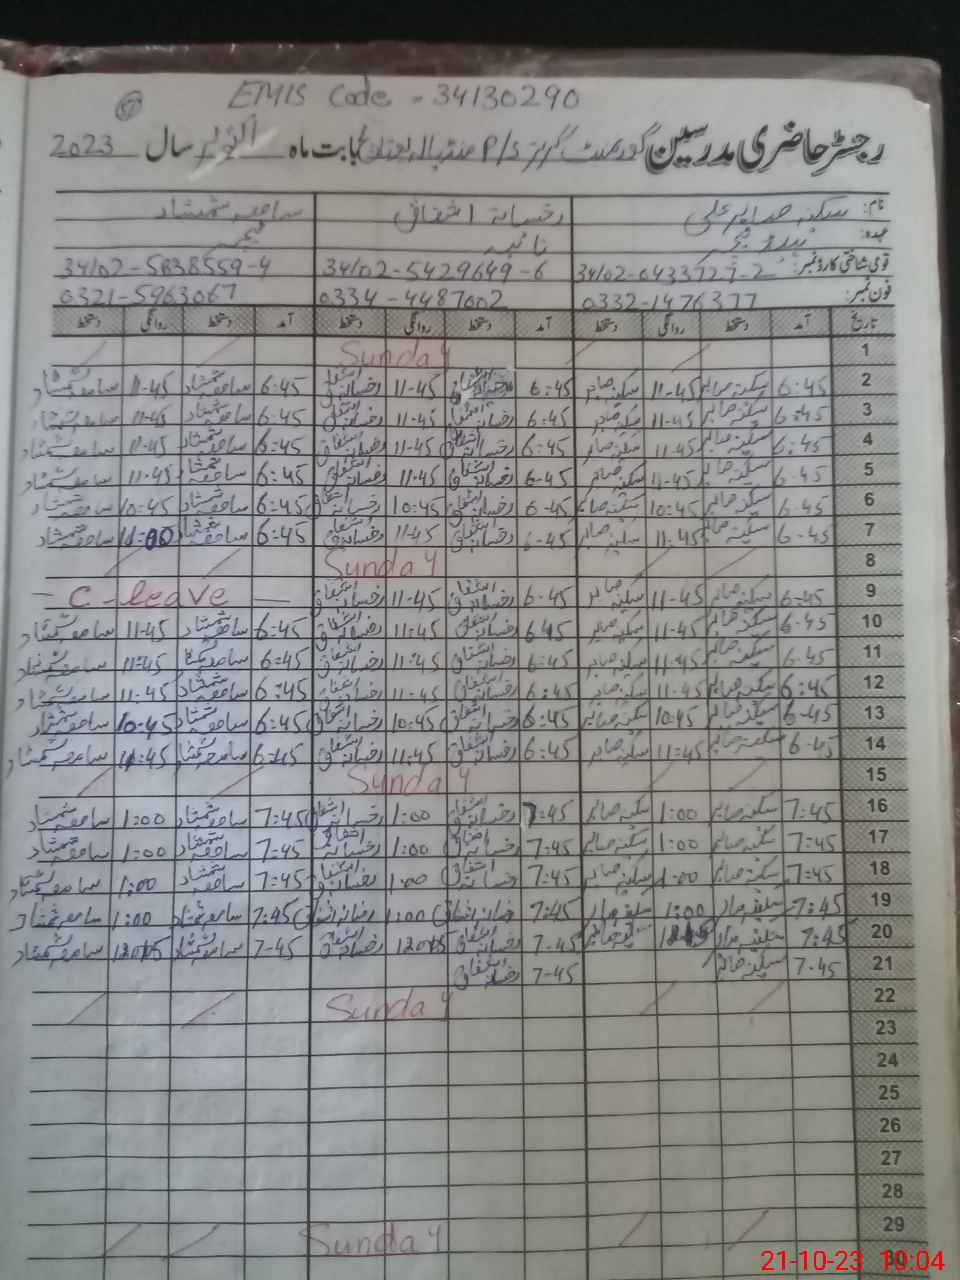 57
EMIS Code - 34130290
رجسٹر حاضری مدرسین گورنمنٹ گرلز P/S بابت ماہ اکتوبر سال 2023
نام: سکینہ صابر علی رخسانہ اشفاق ساجدہ شمشاد
عہدہ: ٹیچر
قومی شناختی کارڈ نمبر: 34102-0433727-2 34102-5429649-6 34102-5838559-4
فون نمبر: 0332-1476377 0334-4487002 0321-5963067
تاریخ آمد دستخط روانگی دستخط آمد دستخط روانگی دستخط آمد دستخط روانگی دستخط
1 Sunday
2 6:45 سکینہ صابر 11-45 سکینہ صابر 6:45 رخسانہ اشفاق 11-45 رخسانہ اشفاق 6:45 ساجدہ شمشاد 11-45 ساجدہ شمشاد
3 6:45 سکینہ صابر 11-45 سکینہ صابر 6:45 رخسانہ اشفاق 11-45 رخسانہ اشفاق 6-45 ساجدہ شمشاد 11-45 ساجدہ شمشاد
4 6:45 سکینہ صابر 11-45 سکینہ صابر 6:45 رخسانہ اشفاق 11-45 رخسانہ اشفاق 6:45 ساجدہ شمشاد 11-45 ساجدہ شمشاد
5 6-45 سکینہ صابر 11-45 سکینہ صابر 6-45 رخسانہ اشفاق 11-45 رخسانہ اشفاق 6:45 ساجدہ شمشاد 11-45 ساجدہ شمشاد
6 6-45 سکینہ صابر 10:45 سکینہ صابر 6-45 رخسانہ اشفاق 10:45 رخسانہ اشفاق 6:45 ساجدہ شمشاد 10:45 ساجدہ شمشاد
7 6-45 سکینہ صابر 11:45 سکینہ صابر 6-45 رخسانہ اشفاق 11:45 رخسانہ اشفاق 6:45 ساجدہ شمشاد 11:00 ساجدہ شمشاد
8 Sunday
9 6:45 سکینہ صابر 11-45 سکینہ صابر 6-45 رخسانہ اشفاق 11-45 رخسانہ اشفاق — C-leave —
10 6-45 سکینہ صابر 11-45 سکینہ صابر 6-45 رخسانہ اشفاق 11:45 رخسانہ اشفاق 6:45 ساجدہ شمشاد 11-45 ساجدہ شمشاد
11 6-45 سکینہ صابر 11:45 سکینہ صابر 6:45 رخسانہ اشفاق 11:45 رخسانہ اشفاق 6:45 ساجدہ شمشاد 11:45 ساجدہ شمشاد
12 6:45 سکینہ صابر 11-45 سکینہ صابر 6:45 رخسانہ اشفاق 11-45 رخسانہ اشفاق 6:45 ساجدہ شمشاد 11-45 ساجدہ شمشاد
13 6-45 سکینہ صابر 10:45 سکینہ صابر 6:45 رخسانہ اشفاق 10:45 رخسانہ اشفاق 6:45 ساجدہ شمشاد 10:45 ساجدہ شمشاد
14 6-45 سکینہ صابر 11:45 سکینہ صابر 6:45 رخسانہ اشفاق 11:45 رخسانہ اشفاق 6:45 ساجدہ شمشاد 11:45 ساجدہ شمشاد
15 Sunday
16 7:45 سکینہ صابر 1:00 سکینہ صابر 7:45 رخسانہ اشفاق 1:00 رخسانہ اشفاق 7:45 ساجدہ شمشاد 1:00 ساجدہ شمشاد
17 7:45 سکینہ صابر 1:00 سکینہ صابر 7:45 رخسانہ اشفاق 1:00 رخسانہ اشفاق 7:45 ساجدہ شمشاد 1:00 ساجدہ شمشاد
18 7:45 سکینہ صابر 1:00 سکینہ صابر 7:45 رخسانہ اشفاق 1:00 رخسانہ اشفاق 7:45 ساجدہ شمشاد 1:00 ساجدہ شمشاد
19 7:45 سکینہ صابر 1:00 سکینہ صابر 7:45 رخسانہ اشفاق 1:00 رخسانہ اشفاق 7:45 ساجدہ شمشاد 1:00 ساجدہ شمشاد
20 7:45 سکینہ صابر سکینہ صابر 7-45 رخسانہ اشفاق رخسانہ اشفاق 7-45 ساجدہ شمشاد ساجدہ شمشاد
21 7-45 سکینہ صابر 7-45 رخسانہ اشفاق
22 Sunday
23
24
25
26
27
28
29 Sunday
30
21-10-23 10:04